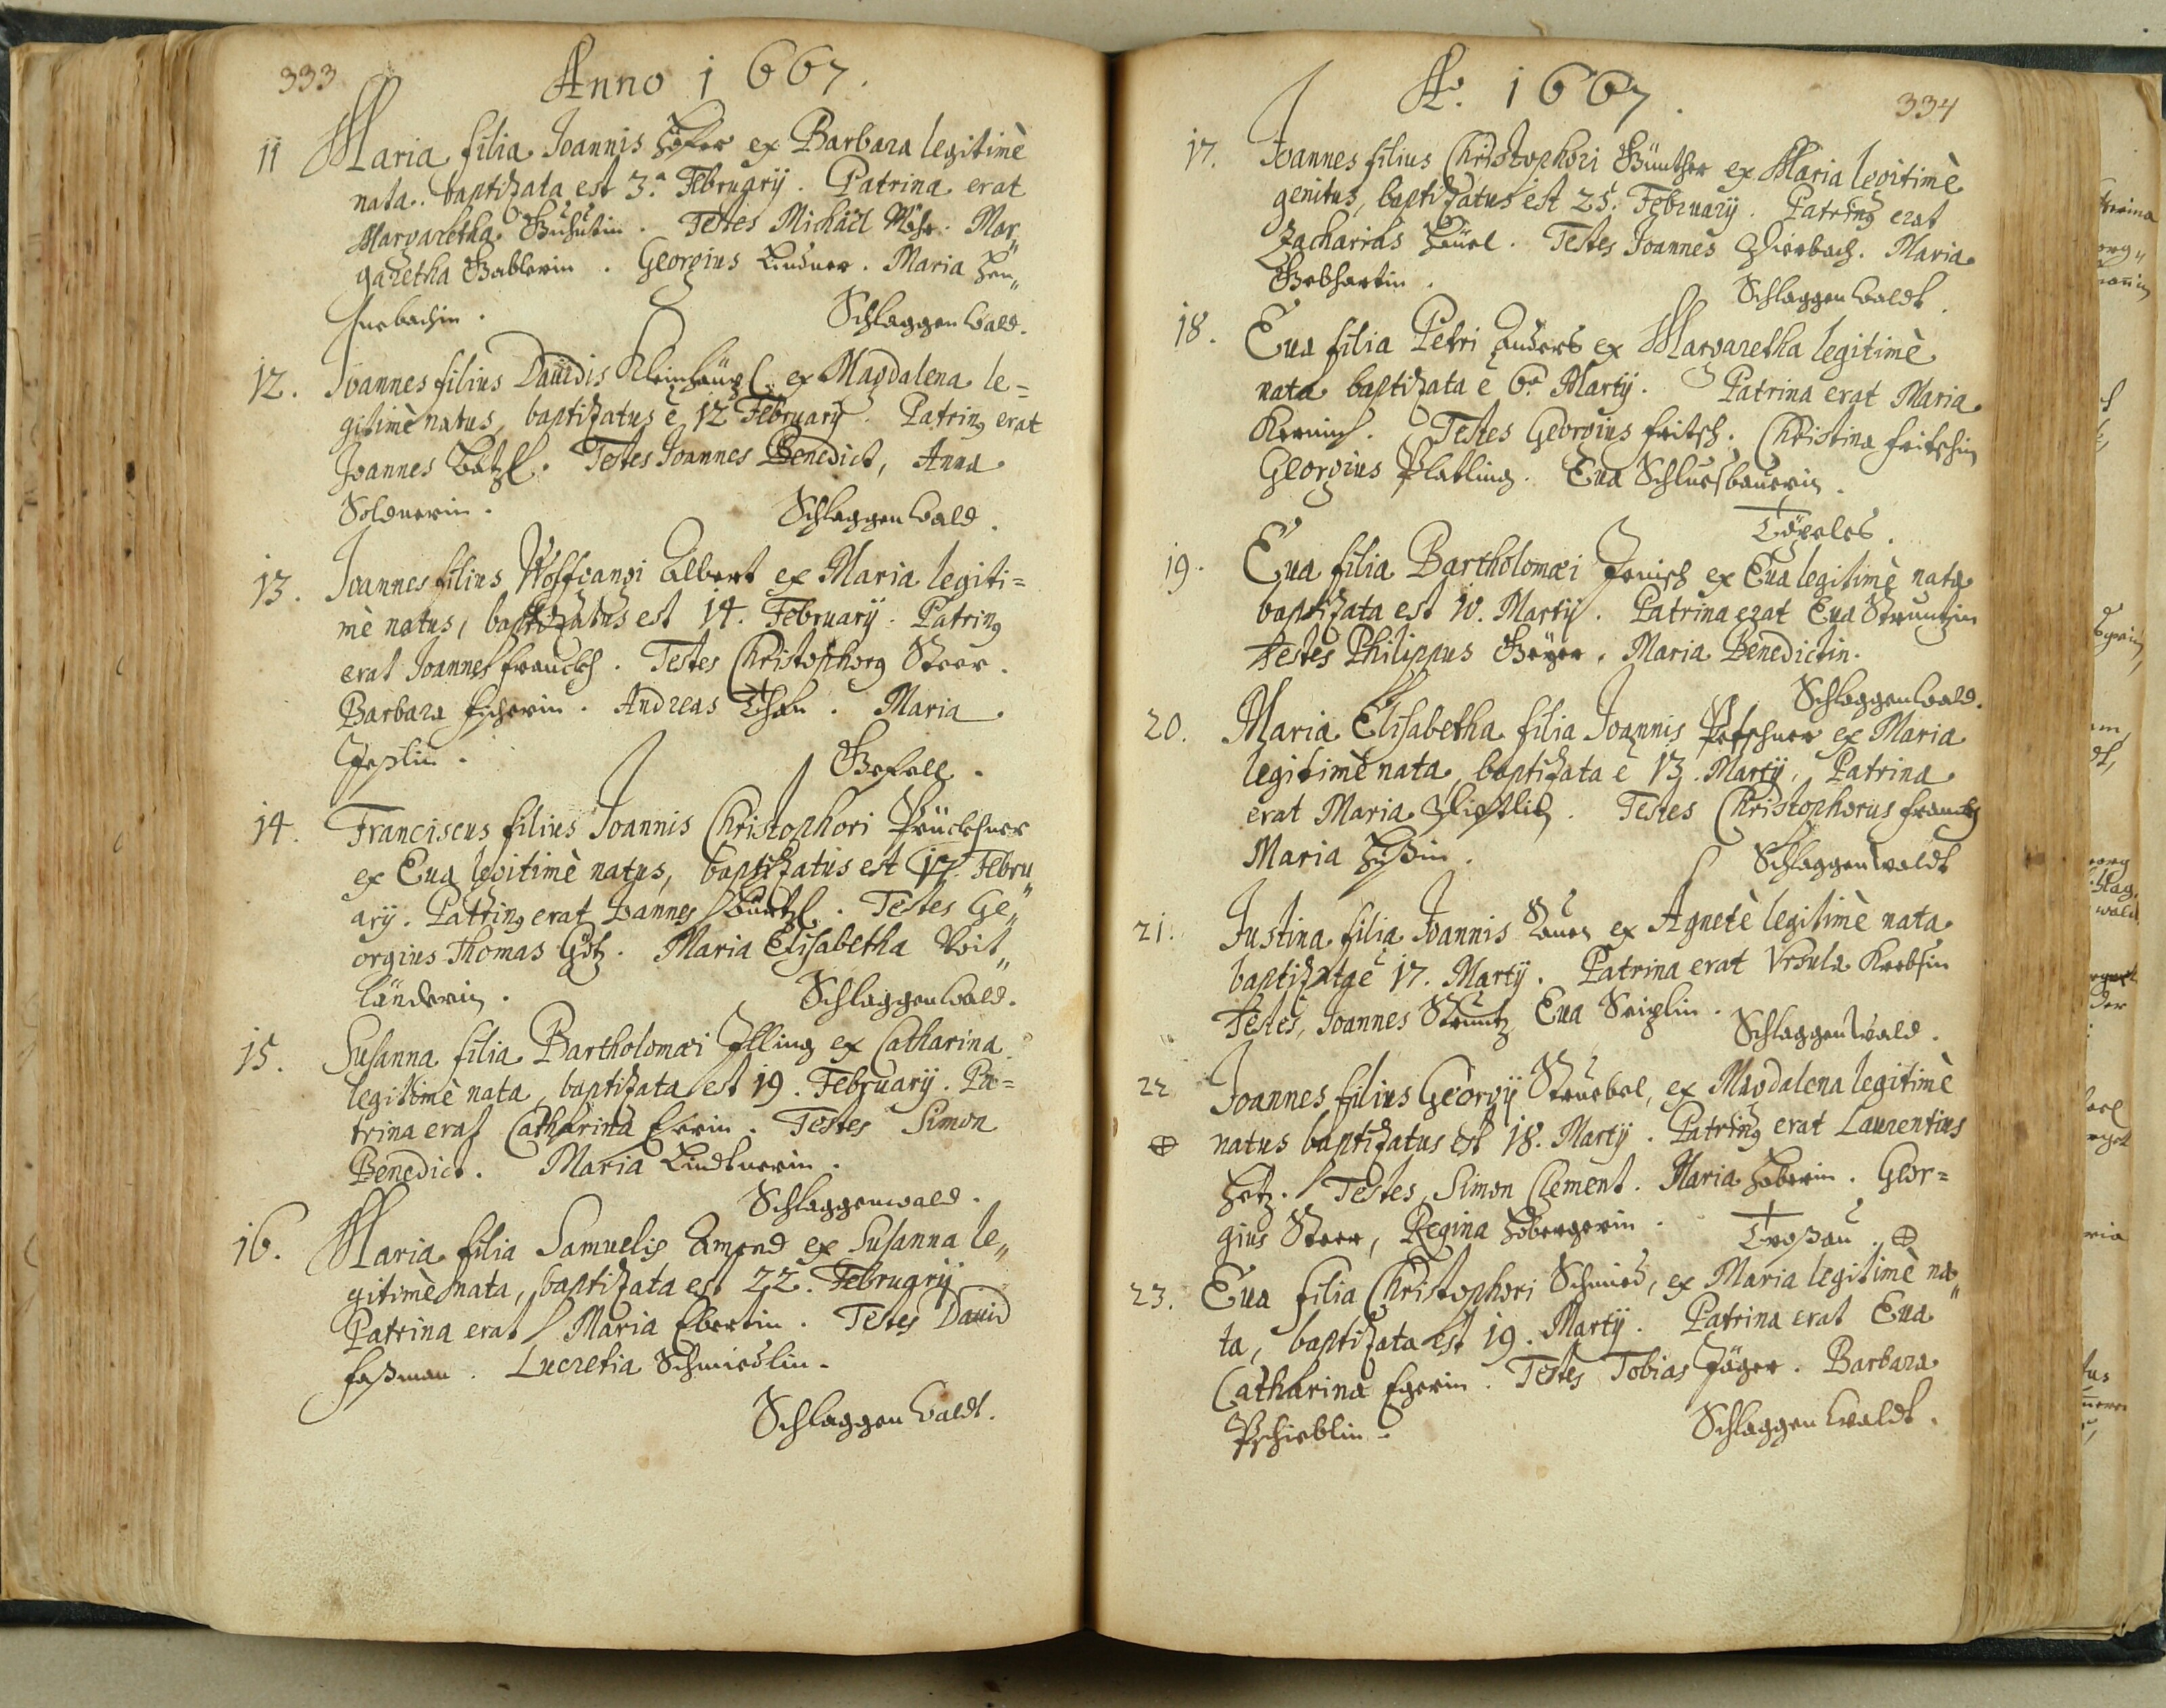 333
Anno 1667.
11 Maria filia Joannis Höfer ex Barbara legitimè
nata. baptizata est 3.ª Februarij. Patrina erat
Margaretha. Testes Michäel Möhr. Mar„
garetha Gablerin. Georgius Lindner. Maria Hen„
Schlaggenwald.
12. Joannes filius Dauidis Kleinhäupl ex Magdalena le=
gitimè natus, baptizatus è 12 February. Patrinꝰ erat
Joannes Bätzl. Testes Joannes Benedict, Anna
Soldnerin.
Schlaggenwald.
13. Joannes filius Wolffgangi Albert ex Maria legiti=
mè natus, baptizatus est 14. February. Patrinꝰ
erat Joannes Franckh. Testes Christophorꝰ Steer.
Barbara Fischerin. Andreas. Maria
Gfell.
14. Franciscus filius Joannis Christophori Prückhner
ex Eua legitimè natus, baptizatus est 17. Febru„
ary. Patrinꝰ erat Joannes. Testes Ge„
orgius Thomas Götz. Maria Elisabetha Voit„
länderin.
Schlaggenwald.
15. Susanna filia Bartholomæi Illing ex Catharina
legitimè nata, baptizata est 19. February. Pa=
trina erat Catharina. Testes Simon
Benedict. Maria Lindtnerin.
Schlaggenwald.
16. Maria filia Samuelis Amend ex Susanna le„
gitimè nata, baptizata est 22. Februarij
Patrina erat Maria Ebertin. Testes Dauid
Faßman. Lucretia Schmiedlin.
Schlaggenwaldt.
Aº. 1667.
334
17. Joannes filius Christophori Günther ex Maria legitimè
genitus, baptizatus est 25. February. Patrinꝰ erat
Zacharias. Testes Joannes. Maria
Gebhartin.
Schlaggenwaldt.
18. Eua filia Petri Anders ex Margaretha legitimè
nata baptizata è 6ª Martij. Patrina erat Maria
Testes Georgius Fritsch. Christina Fritschin
Georgius Platling. Eua
Töpeles.
19. Eua filia Bartholomæi Jenisch ex Eua legitimè nata
baptizata est 10. Martij. Patrina erat Eua Struntzin
Testes Philippus Geÿer. Maria Benedictin.
Schlaggenwald.
20. Maria Elisabetha filia Joannis Petschner ex Maria
legitimè nata, baptizata è 13. Martij, Patrina
erat Maria. Testes Christophorus Franckh
Maria
Schlaggenwaldt
21. Justina filia Joannis ex Agnete legitimè nata
baptizata è 17. Martij. Patrina erat Vrsula Krebsin
Testes, Joannes Struntz Eua
Schlaggenwald.
22 Joannes filius Georgij Struebel, ex Magdalena legitimè
⊕ natus baptizatus est 18. Martij. Patrinꝰ erat Laurentius
Testes, Simon Clement. Maria. Geor=
gius Steer, Regina
Troßau. ⊕
23. Eua filia Christophori Schmied, ex Maria legitimè na„
ta, baptizata est 19. Martij. Patrina erat Eua
Catharina Egerin. Testes Tobias Jäger. Barbara
Schlaggenwaldt.